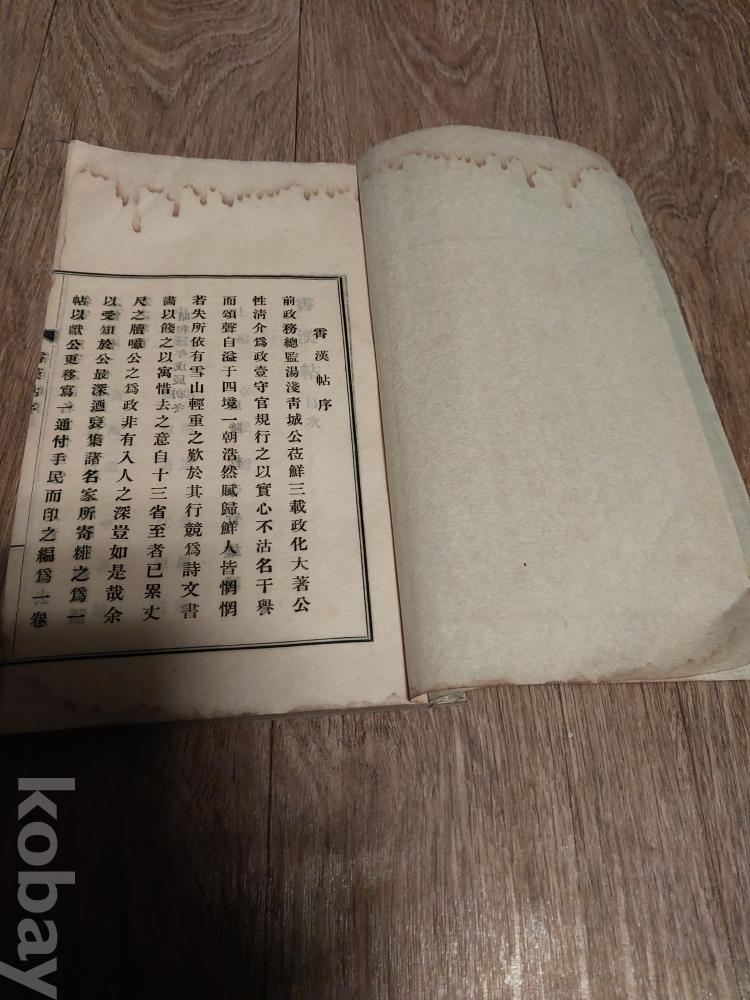 霄漢帖序
前政務總監湯淺靑城公莅鮮三載政化大著公
性淸介爲政壹守官規行之以實心不沽名干譽
而頌聲自溢于四境一朝浩然賦歸鮮人皆惘惘
若失所依有雪山輕重之歎於其行競爲詩文書
畵以餞之以寓惜去之意自十三省至者已累丈
尺之牘噫公之爲政非有入人之深豈如是哉余
以受知於公最深迺裒集諸名家所寄糚之爲一
帖以獻公更移寫一通付手民而印之編爲一卷
霄漢帖序
kobay